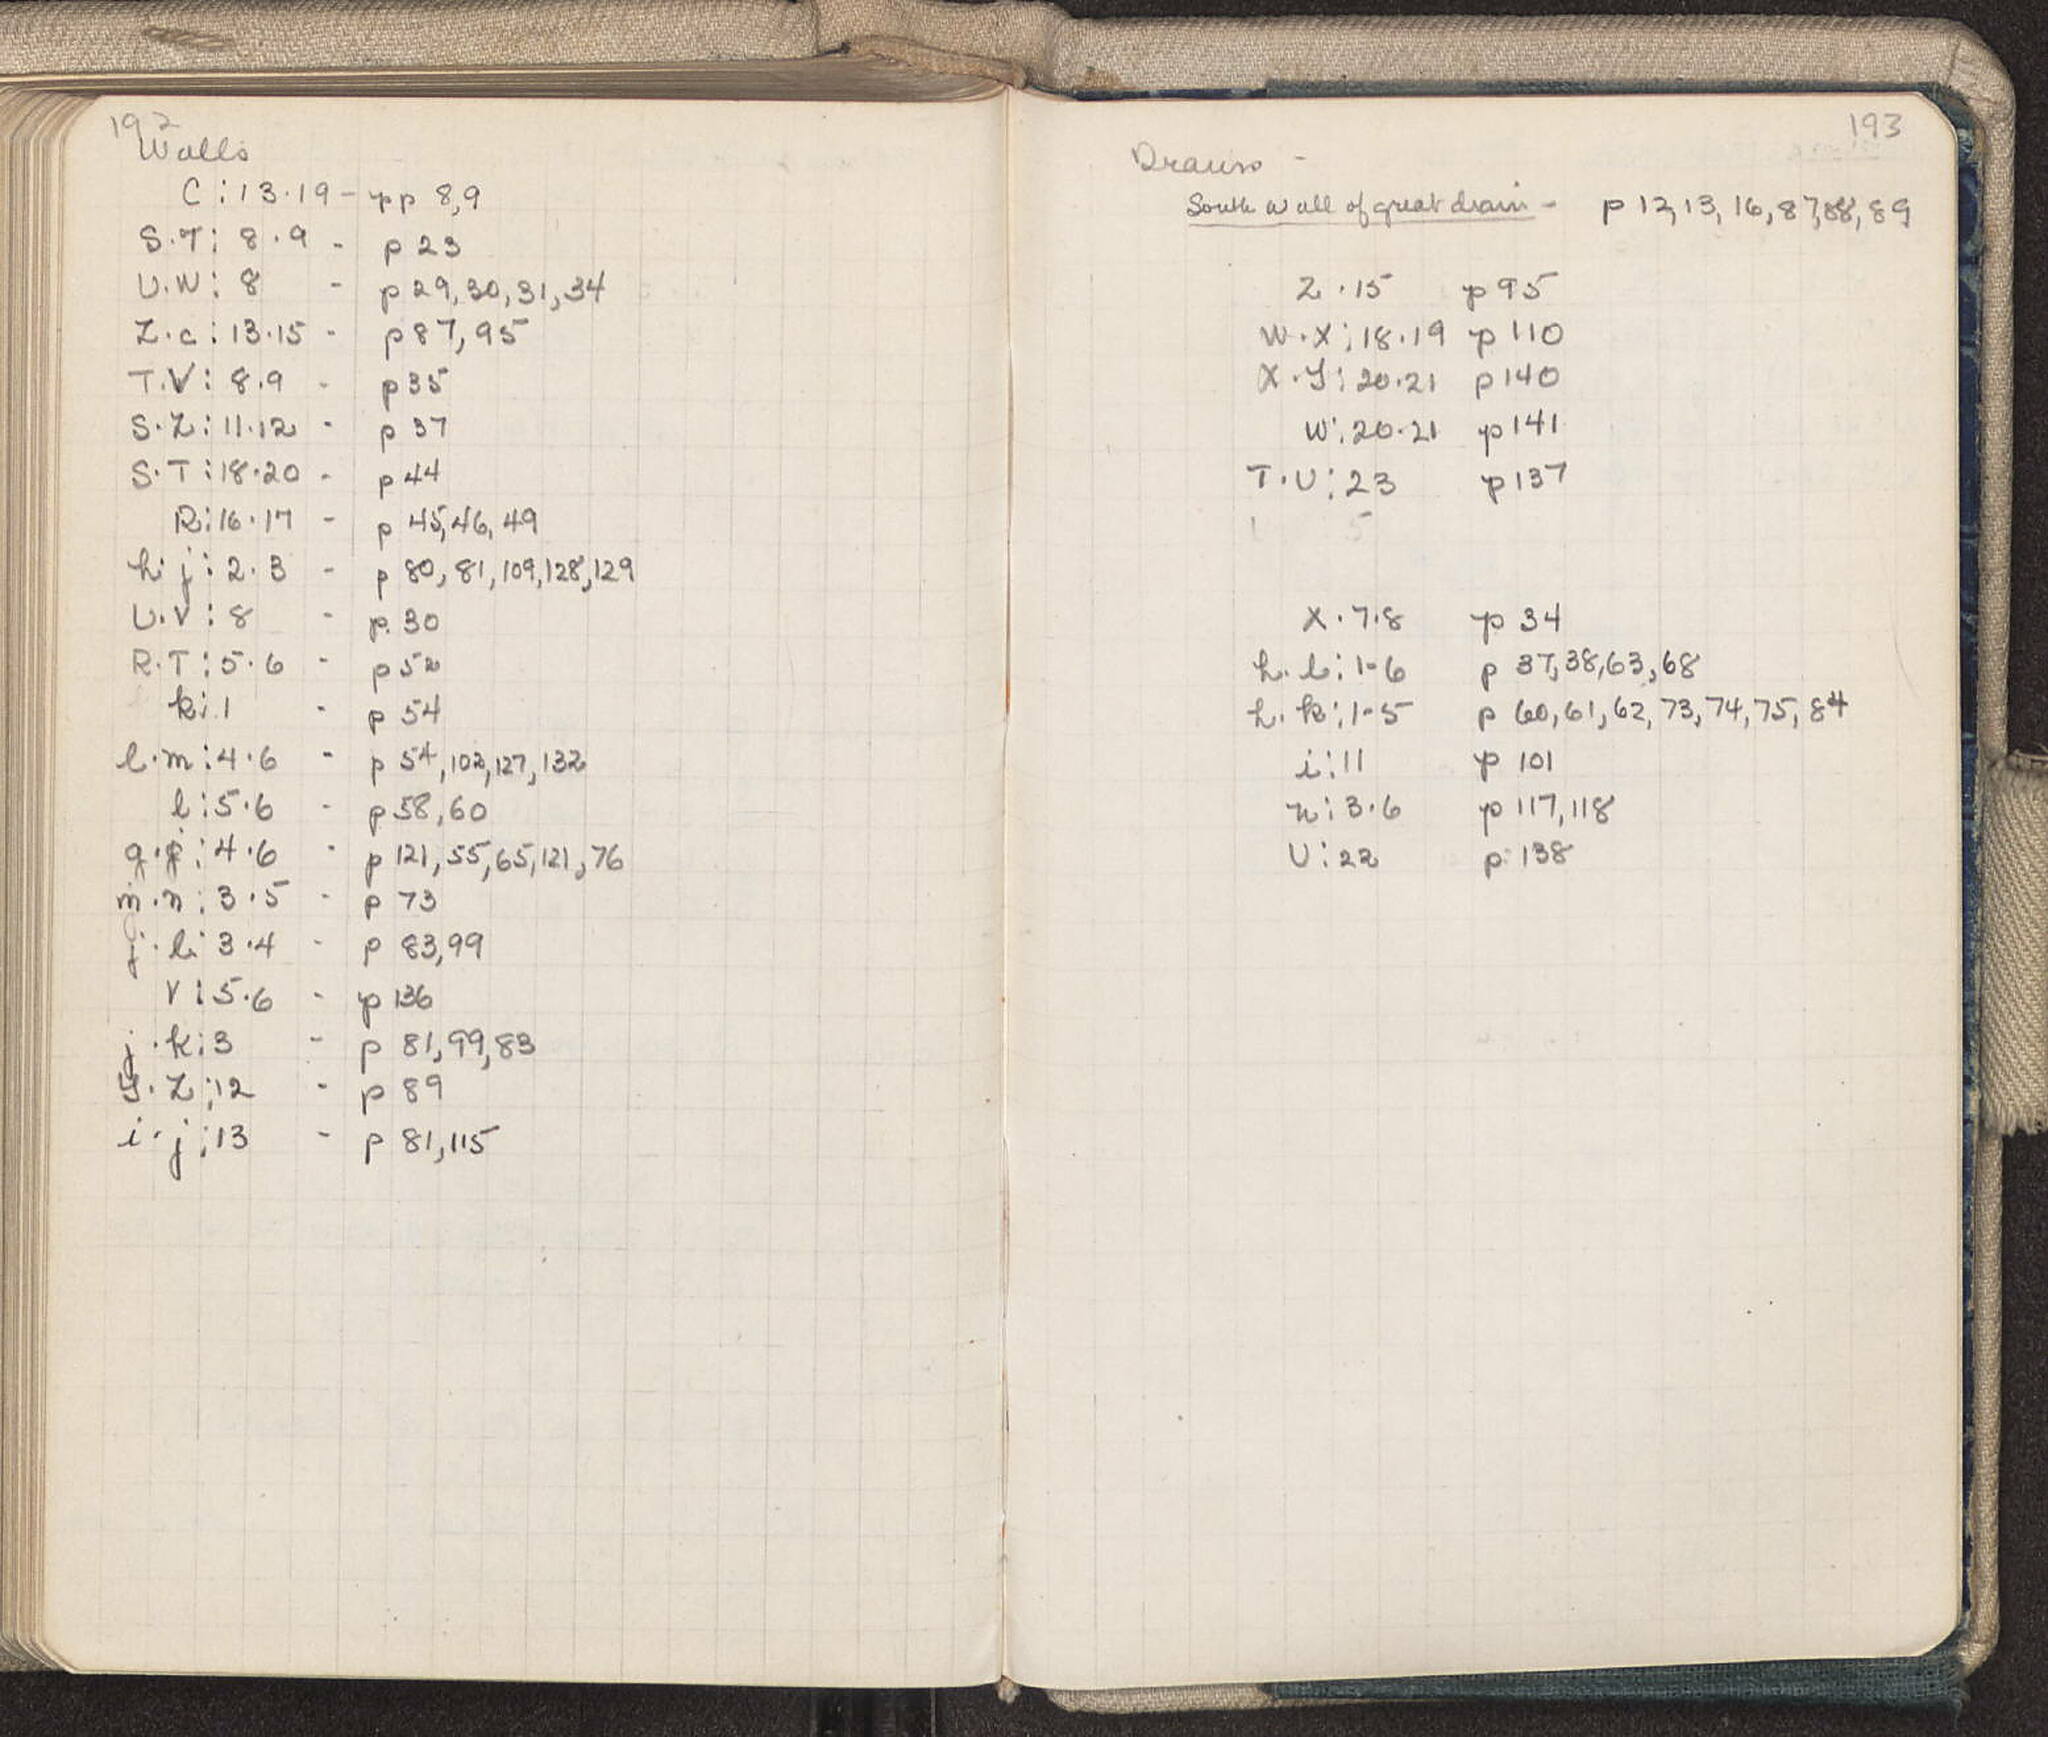 192
Walls
C: 13.19 - pp 8,9
S.T: 8.9 - p 23
U.W: 8 - p 29, 30, 31, 34
Z.c: 13.15 - p 87, 95
T.V: 8.9 - p 35
S.Z: 11.12 - p 37
S.T: 18.20 - p 44
R: 16.17 - p 45, 46, 49
h.j: 2.3 - p 80, 81, 109, 128, 129
U.V: 8 - p. 30
R.T: 5.6 - p 52
k: 1 - p 54
l.m: 4.6 - p 54, 102, 127, 132
l: 5.6 - p 58, 60
4.6 - p 121, 55, 65, 121, 76
m.n: 3.5 - p 73
j.l: 3.4 - p 83, 99
V: 5.6 - p 136
j.k: 3 - p 81, 99, 83
Y.Z: 12 - p 89
i.j: 13 - p 81, 115
193
Drains -
South wall of great drain - p 12, 13, 16, 87, 88, 89
Z.15 p 95
W.X: 18.19 p 110
X.Y: 20.21 p 140
W: 20.21 p 141
T.U: 23 p 137
X.7.8 p 34
h.l: 1-6 p 37, 38, 63, 68
h.k: 1-5 p 60, 61, 62, 73, 74, 75, 84
i: 11 p 101
n: 3.6 p 117, 118
U: 22 p. 138